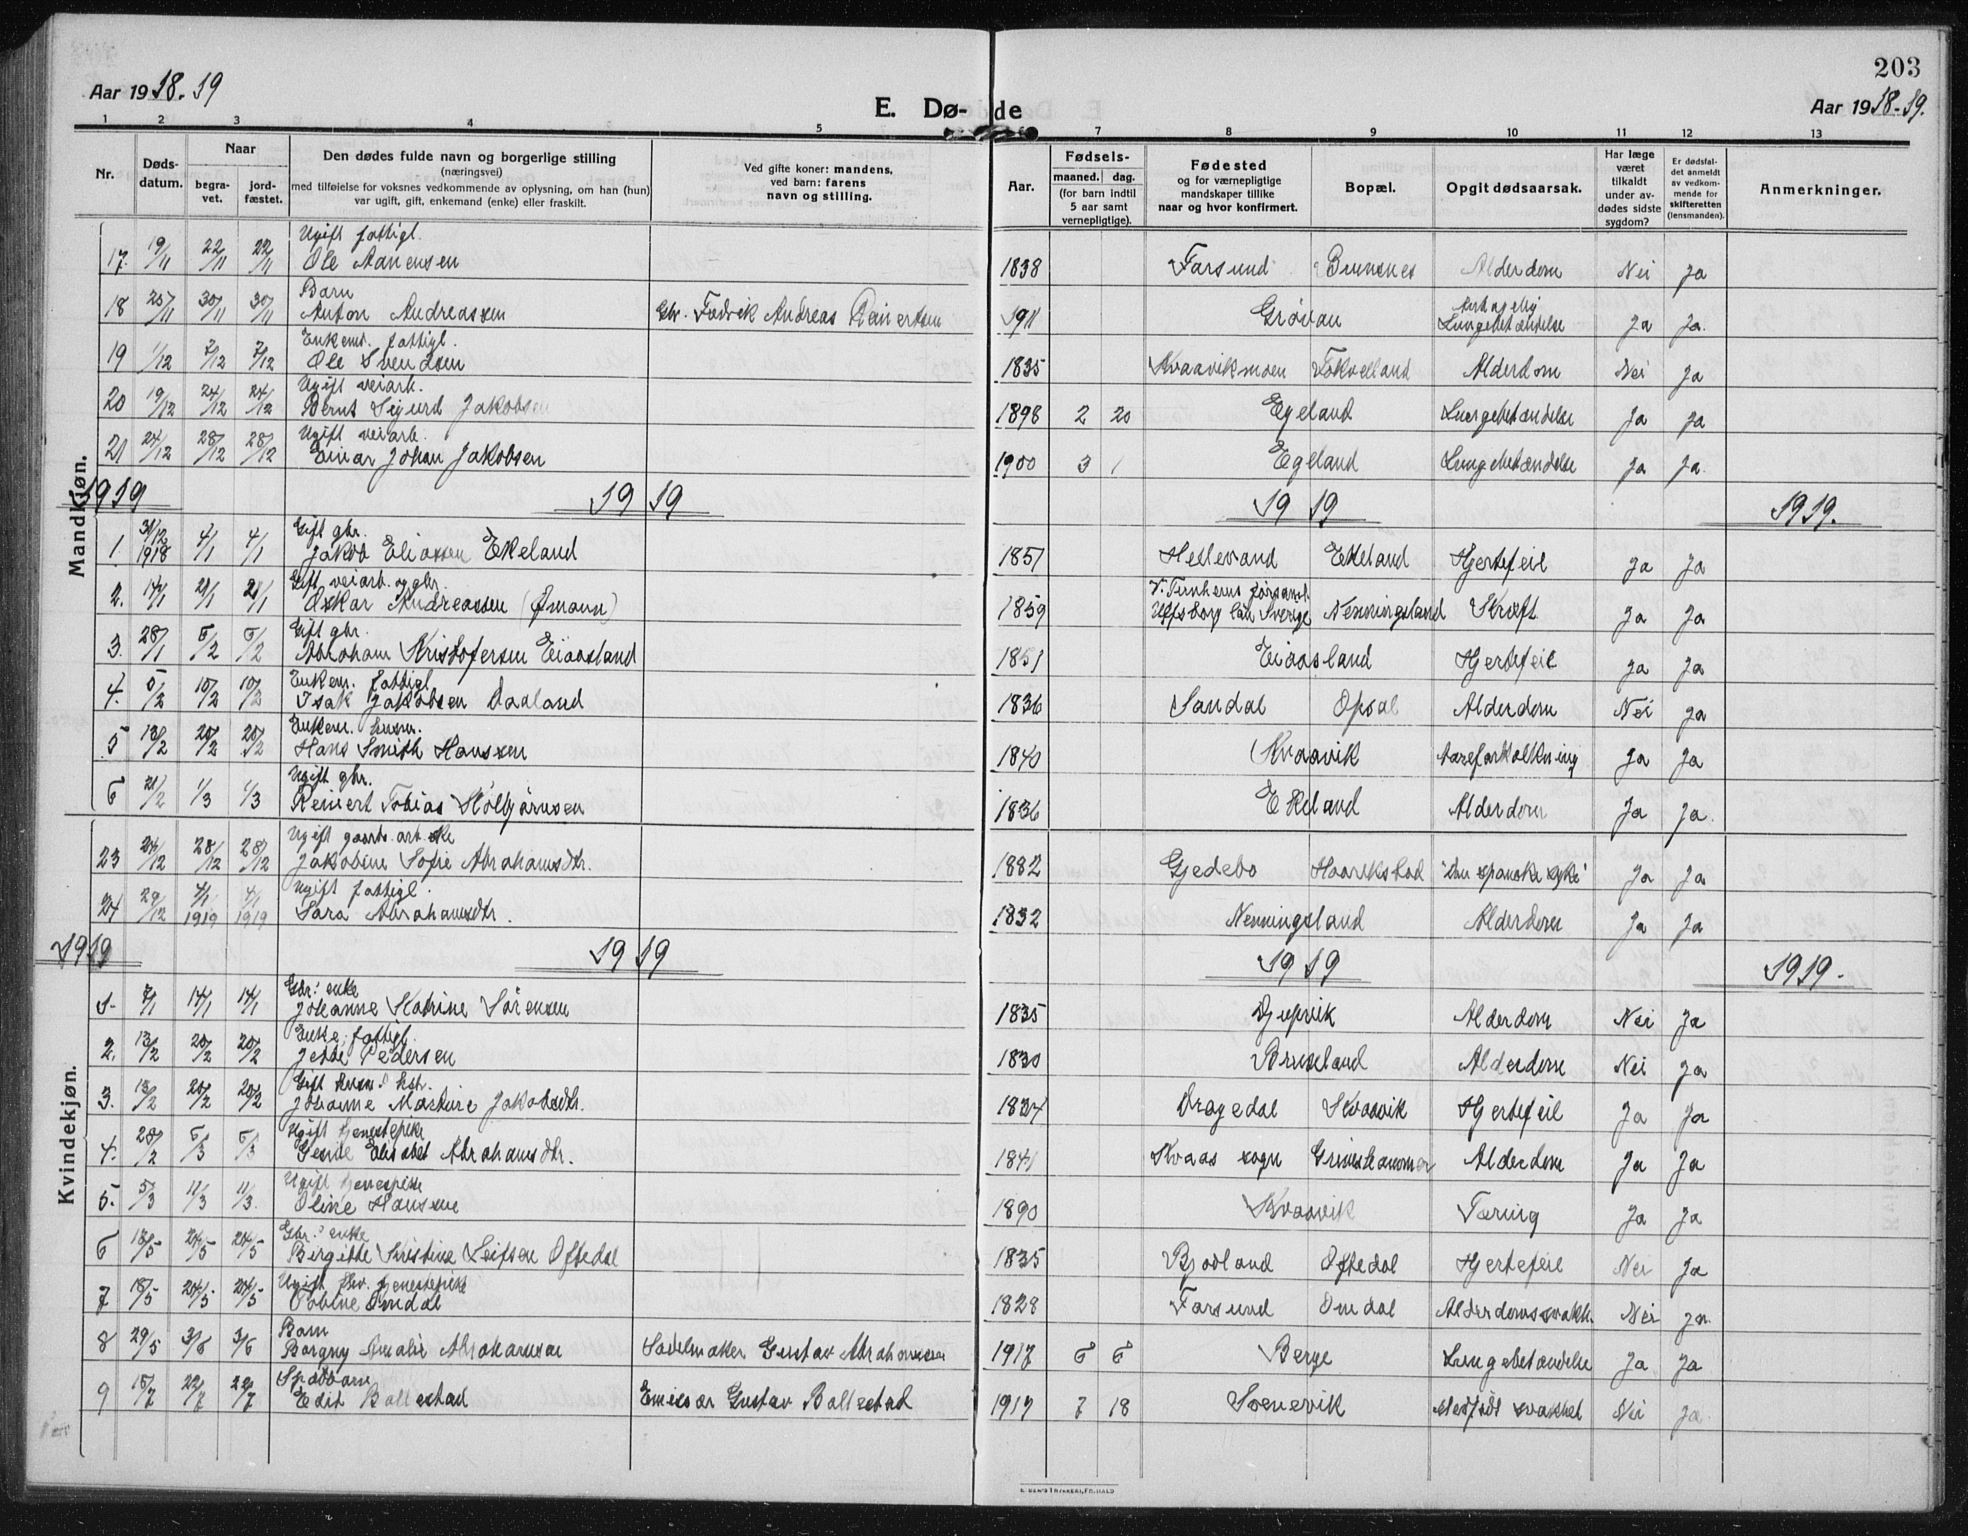 203
Aar 1918-19
E. Dø-
de
Aar 1918-19.
1 2 3 4 5 6 7 8 9 10 11 12 13
Nr. Døds-datum. Naar begravet. jordfæstet. Den dødes fulde navn og borgerlige stilling (næringsvei) med tilføielse for voksnes vedkommende av oplysning, om han (hun) var ugift, gift, enkemand (enke) eller fraskilt. Ved gifte koner: mandens, ved barn: farens navn og stilling. Aar. Fødsels- maaned. dag. (for barn indtil 5 aar samt vernepligtige). Fødested og for værnepligtige mandskaper tillike naar og hvor konfirmert. Bopæl. Opgit dødsaarsak. Har læge været tilkaldt under avdødes sidste sygdom? Er dødsfaldet anmeldt av vedkommende for skifteretten (lensmanden). Anmerkninger.
Mandkjøn.
Ugift fattigl.
17. 19/11 22/11 22/11 Ole Aanensen 1838 Farsund Alderdom Nei Ja
Barn
18 25/11 30/11 30/11 Anton Andreassen Gbr. Andreas Reinertsen 1911 Grøvan Lungebetændelse Ja Ja.
Enkem. fattigl.
19 1/12 7/12 7/12 Ole Svendsen 1835 Kvaavikmoen Alderdom Nei Ja
Ugift veiarb.
20 19/12 24/12 24/12 Bernt Sigurd Jakobsen 1898 2 20 Egeland Lungebetændelse Ja Ja
Ugift veiarb.
21 24/12 28/12 28/12 Einar Johan Jakobsen 1900 3 1 Egeland Lungebetændelse Ja Ja.
1919 1919 1919 1919.
Gift gbr.
1. 31/12 1918 4/1 4/1 Jakob Eliassen Ekeland 1851 Ekeland Hjertefeil Ja Ja
Gift, veiarb. og gbr.
2. 14/1 21/1 21/1 Oskar Andreassen (Ømann) 1859 Elfsborg län Sverige Nenningsland Kræft Ja Ja
Gift gbr.
3. 28/1 6/2 6/2 Abraham Kristofersen Eiaasland 1851 Eiaasland Hjertefeil Ja Ja
Enkem. fattigl.
4. 5/2 10/2 10/2 Isak Jakobsen Daaland 1836 Sandal Opsal Alderdom Nei Ja
Enkem. husm.
5 13/2 20/2 20/2 Hans Smith Hanssen 1840 Kvaavik Aareforkalkning Ja Ja
Ugift gbr.
6 21/2 1/3 1/3 Reinert Tobias Holbjørnsen 1836 Ekeland Alderdom Ja Ja.
Kvindekjøn.
Ugift gaards.arb.ske
23 24/12 28/12 28/12 Jakobine Sofie Abrahamsdtr. 1882 Gjedebo Haavikstad "Den spanske syke" Ja Ja
Ugift fattigl.
24 29/12 4/1 1919 4/1 1919 Sara Abrahamsdtr. 1832 Nenningsland Alderdom Ja Ja
1919 1919 1919 1919.
Gbr: enke
1. 7/1 14/1 14/1 Johanne Katrine Sørensen 1835 Djupvik Alderdom Nei Ja
Enke, fattigl.
2. 13/2 20/2 20/2 Jette Pedersen 1830 Bruseland Alderdom Nei Ja
Gift husm: kstr.
3. 13/2 20/2 20/2 Johanne Jakobsdtr. 1834 Dragedal Kvaavik Hjertefeil Ja Ja
Ugift tjenestepike
4. 28/2 6/3 6/3 Elisabet Abrahamsdtr. 1841 Kvaas sogn Alderdom Ja Ja
Ugift tjenespike
5. 5/3 11/3 11/3. Oline Hanssen 1890 Kvaavik Tæring Ja Ja
Gbr: enke
6 18/5 24/5 24/5 Birgitte Kristine Leifsen Oftedal 1835 Bjodland Oftedal Hjertefeil Nei Ja
Ugift fhv. tjenestepike
7 18/5 24/5 24/5 Tobine Omdal 1828 Farsund Omdal Alderdomssvakh. Nei Ja.
Barn
8 29/5 3/6 3/6 Borgny Amalie Abrahamsen Sadelmaker Gustav Abrahamsen 1917 6 6 Berge Lungebetændelse Ja Ja
Spædbarn
9 15/7 22/7 22/7 Edit Ballestad Emissær Gustav Ballestad 1917 7 18 Medfødt svakhet Nei Ja.